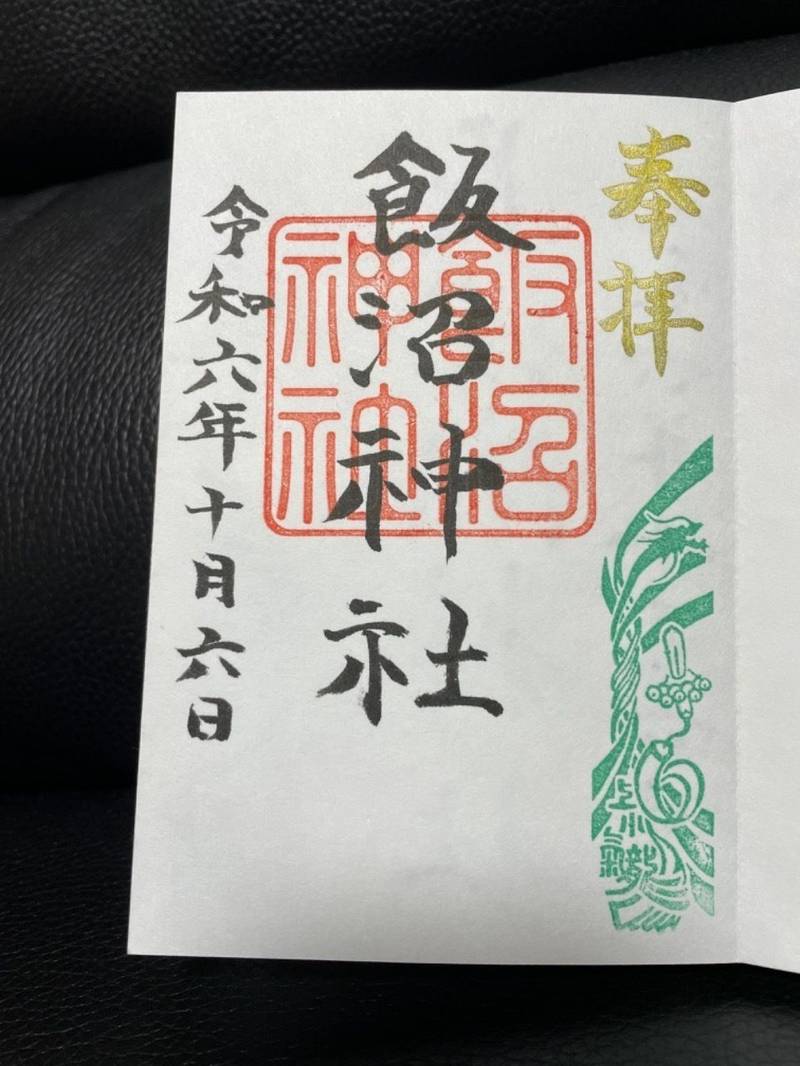 奉拝
飯沼神社
飯沼
神社
令和六年十月六日